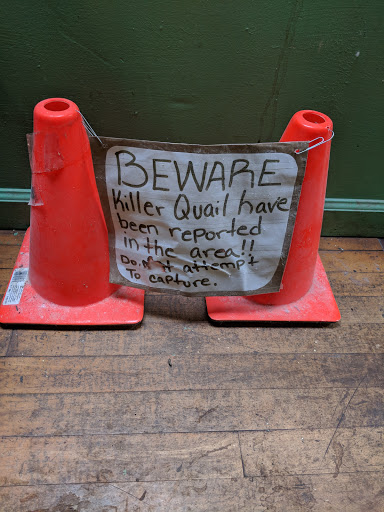 BEWARE
Killer Quail have
been reported
in the area!!
Do not attempt
To capture.